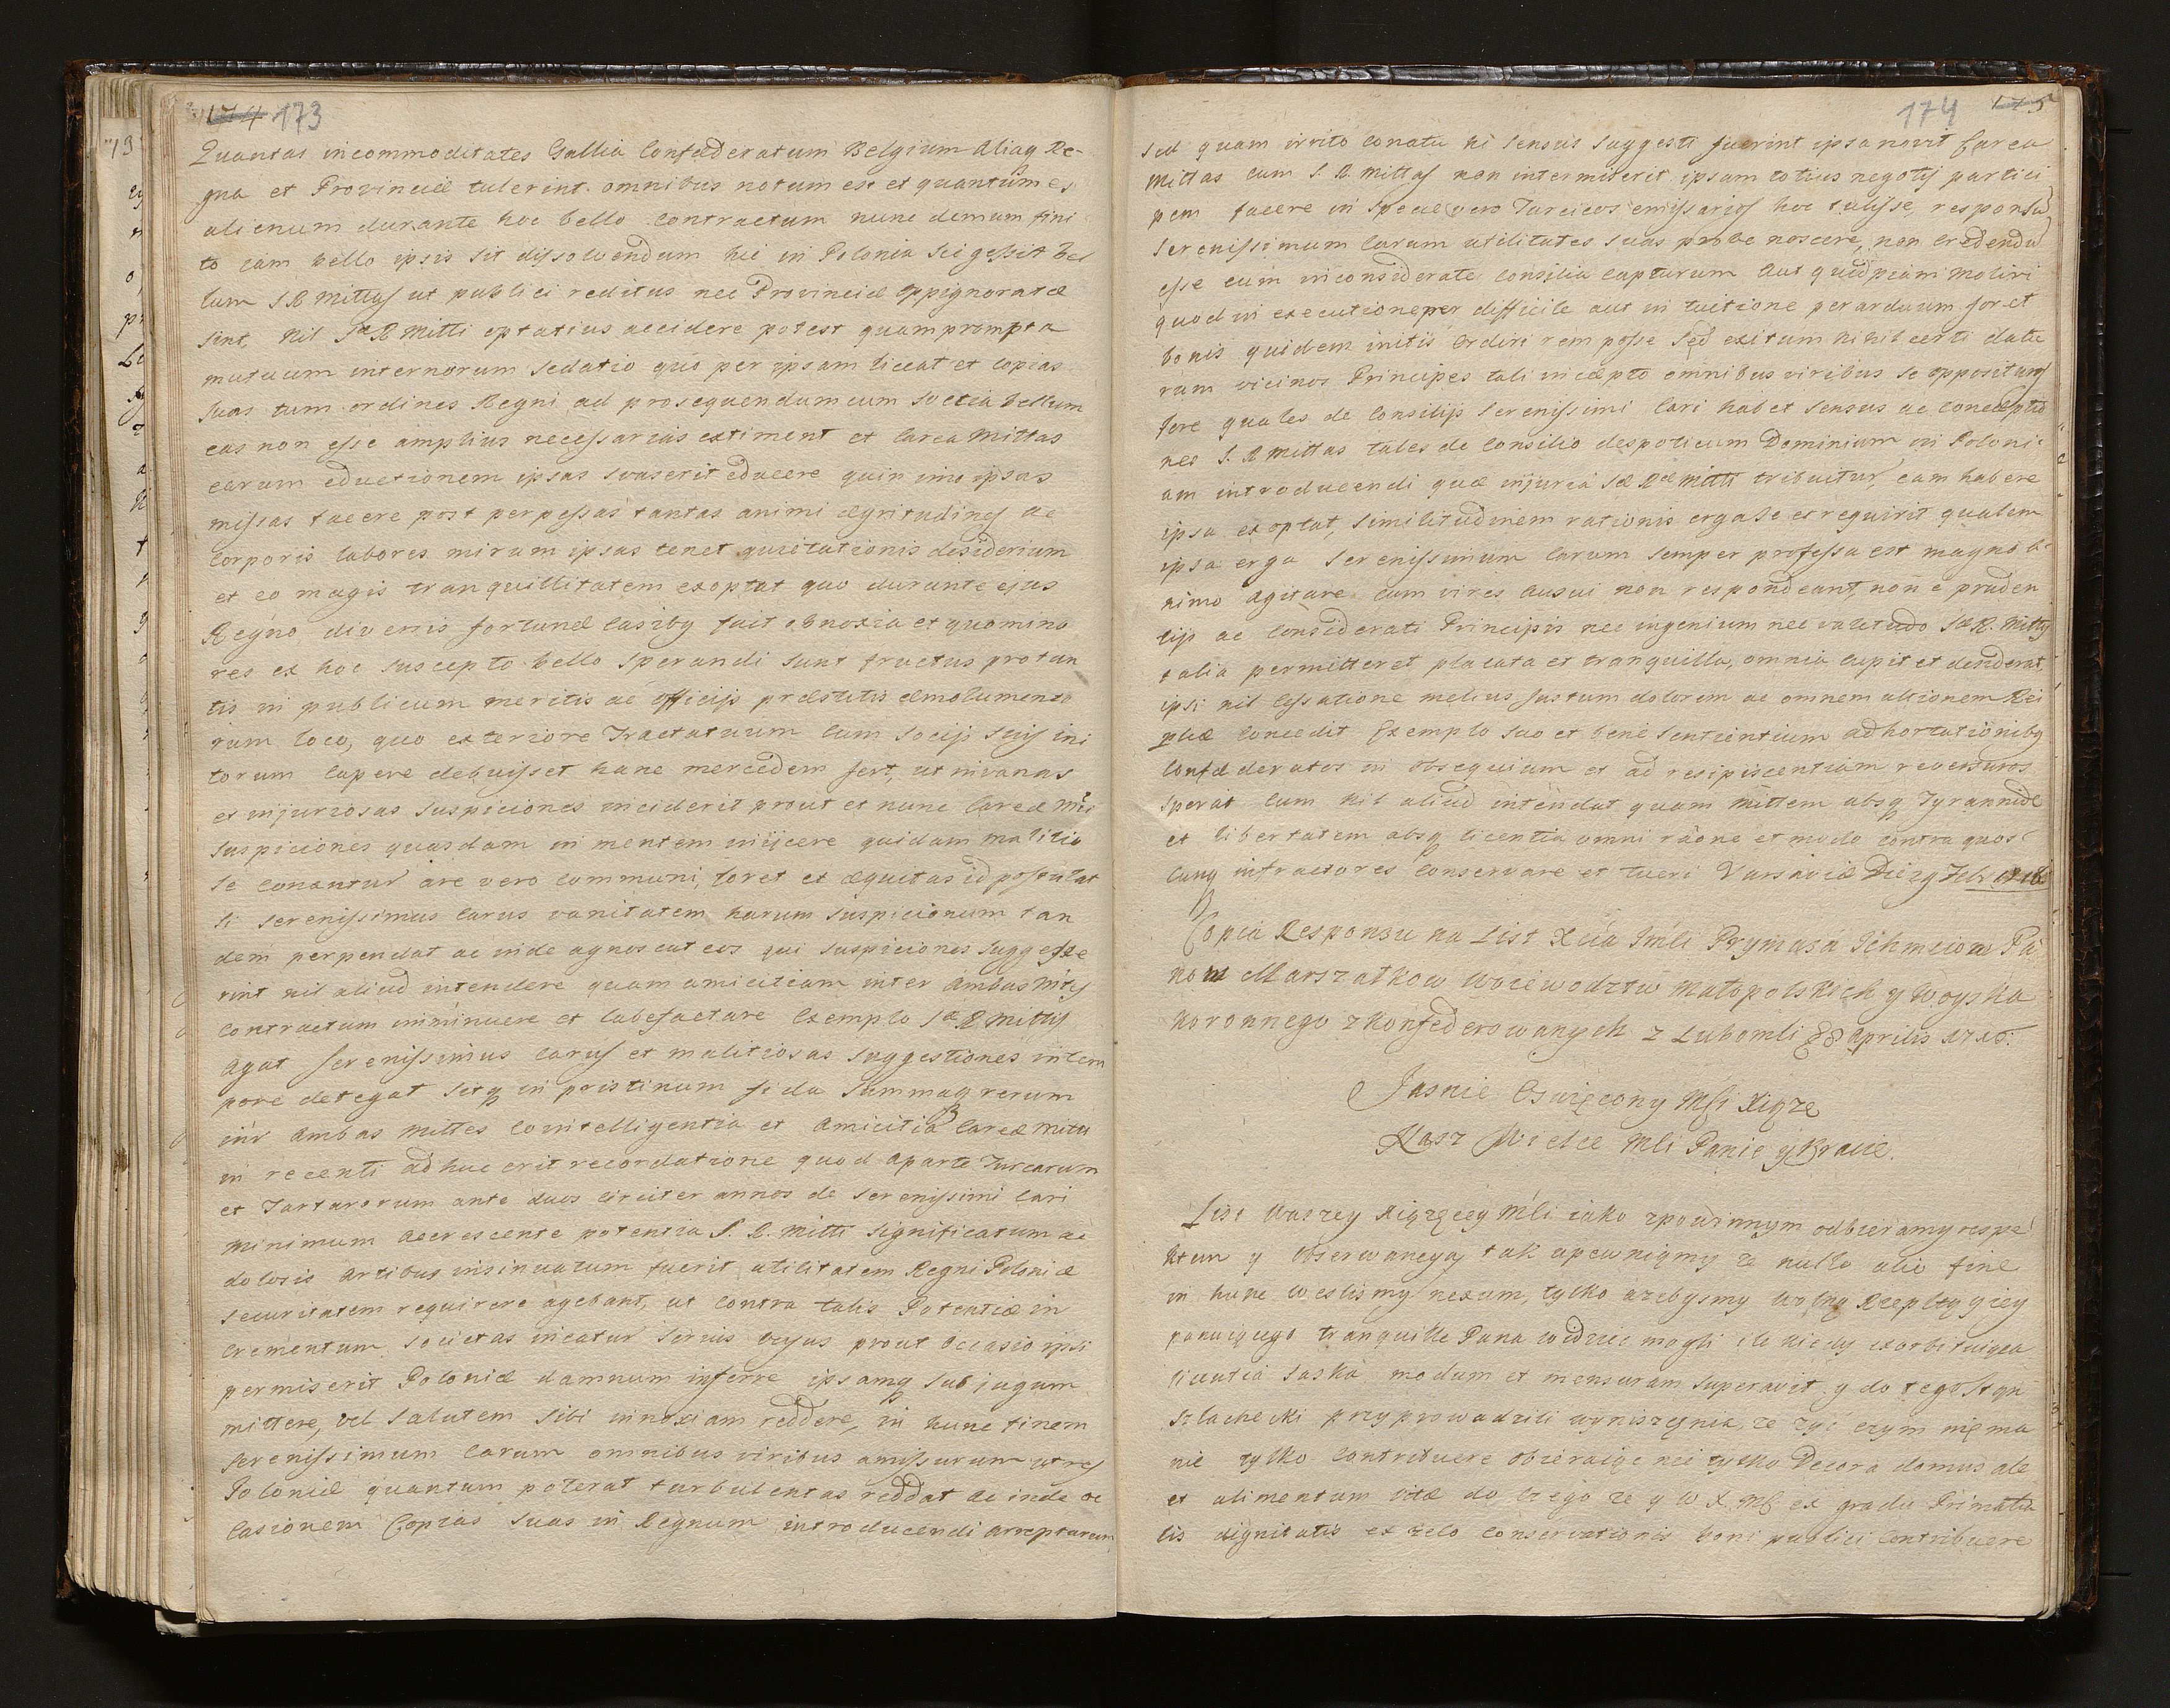 174 173
Quantas incommoditates Gallia Confæderatum Belgium Aliaq Re-
gna et Provinciæ tulerint omnibus notum est et quantum es
alienum durante hoc bello contractum nunc demum fini
to iam bello ipsis sit dissolvendum hic in Polonia sic gessit Bel
lum S R Mittas ut publici reditus nec Provinciæ oppignoratæ
sint, Nil Sæ R Mitti optatius accidere potest quam prompta
motuum internorum sedatio quo per ipsam liceat et copias
suas tum ordines Regni ad prosequendum cum Suetia bellum
eas non esse amplius necessarias extiment et Carea Mittas
earum eductionem ipsas svaserit educere quin imo ipsas
missas facere post perpessas tantas animi ægritudines ac
corporis labores mirum ipsas tenet quietationis desiderium
et eo magis tranquillitatem exoptat quo durante ejus
Regno diversis fortunæ casibq fuit obnoxia et quo mino
res ex hoc suscepto bello sperandi sunt fructus pro tan
tis in publicum meritis ac officijs præstitis æmolumento
rum loco, quo exteriore Tractatuum cum Socijs suis ini
torum capere debuisset hanc mercedem fert, ut in vanas
et injuriosas suspiciones inciderit prout et nunc Careæ Mti
suspiciones quasdam in mentem inijcere quidam malitio
se conantur are vero communi, foret et æquitas id postulat
si serenissimus Carus vanitatem harum suspicionum tan
dem perpendat ac inde agnoscat eos qui suspiciones suggesse
rint nil aliud intendere quam amicitiam inter ambas Mtes
contractam imminuere et labefactare Exemplo Sæ R Mittis
agat serenissimus Carus et malitiosas suggestiones in tem
pore detegat sitq in pristinum fida summaq rerum
intr ambas Mittes cointelligentia et amicitia Careæ Mitti
in recenti adhuc erit recordatione quod a parte Turcarum
et Tartarorum ante duos circiter annos de serenissimi Cari
minimum accrescente potentia S. R. Mitti significatum ac
dolosis artibus insinuatum fuerit utilitatem Regni Poloniæ
securitatem requirere agebant, ut contra talis Potentiæ in
crementum societas ineatur serius prout occasio ipsi
permiserit Poloniæ damnum inferre ipsamq sub jugum
mittere, vel salutem sibi innoxiam reddere, in hunc finem
serenissimum Carum omnibus viribus amissurum ut res
Poloniæ quantum poterat turbulentas reddat ac inde oc
casionem Copias suas in Regnum introducendi arrepturum
174 175
sed quam irrito conatu hi sensus suggesti fuerint ipsa novit Carea
Mittas cum S. R. Mittas non intermiserit ipsam totius negotij partici
pem facere in specie vero Turcicos emissarios hoc tulisse responsu
serenissimum Carum utilitates suas probe noscere, non credendu
esse eum inconsiderate consilia capturum aut quidpiam moliri
quod in executione per difficile aut in tuitione per arduum foret
bonis quidem initiis ordiri rem posse Sed exitum nihil certi datu
rum vicinos Principes tali incæpto omnibus viribus se oppositur
fore quales de Consilijs Serenissimi Cari habet sensus ac conceptio
nes S. R Mittas tales de Consilio despoticum Dominium in Poloni
am introducendi quæ injuria Sæ Ræ Mitti tribuitur, eam habere
ipsa exoptat, similitudinem rationis erga se et requirit qualem
ipsa erga Serenissimum Carum semper professa est magno a
nimo agitare cum vires ausui non respondeant, non e pruden
tis ac Considerati Principis nec ingenium nec valetudo Sæ R. Mittis
talia permitteret placata et tranquilla, omnia cupit et desiderat,
ipsi nil cessatione melius justum dolorem ac omnem ultionem Rei
plicæ concedit Exemplo suo et bene sentientium adhortationibq
Confæderatos in obsequium et ad resipiscentiam reversuros
sperat cum nil aliud intendat quam Mittem absq Tyrannide
et libertatem absq licentia omni raone et modo contra quos
cunq infractores conservare et tueri Varsaviæ Die 29 Febr 1716
Copia Responsu na List Xcia Imci Prymasa Ichmciom Pa
nom Marszałkow Woiewodztw Małopolskich y Woyska
Koronnego zkonfederowanych z Lubomli 28 Aprilis 1716.
Jasnie Oswięcony Msci Xiąze
Nasz Wielce Mci Panie y Bracie.
List Waszey Xiązęcey Mci iako zpowinnym odbieramy respe
ktem y obserwancyą tak upewniamy że nullo alio fine
in hunc weslismy nexum, tylko azebysmy wolną Rzepltą y iey
panuiącego tranquille Pana widziec mogli ile kiedy exorbituiąca
licentia Saska modum et mensuram superavit y do tego stan
szlachecki przyprowadzili wyniszczenia, ze zyć czym niema
nie tylko contribuere obieraiąc nie tylko Decora domus ale
et alimentum vitæ do czego ze y W X Mć ex gradu Primatia
lis dignitatis ex zelo conservationis boni publici contribuere